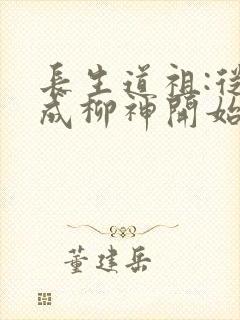 長生道祖:從
成柳神開始
董建岳